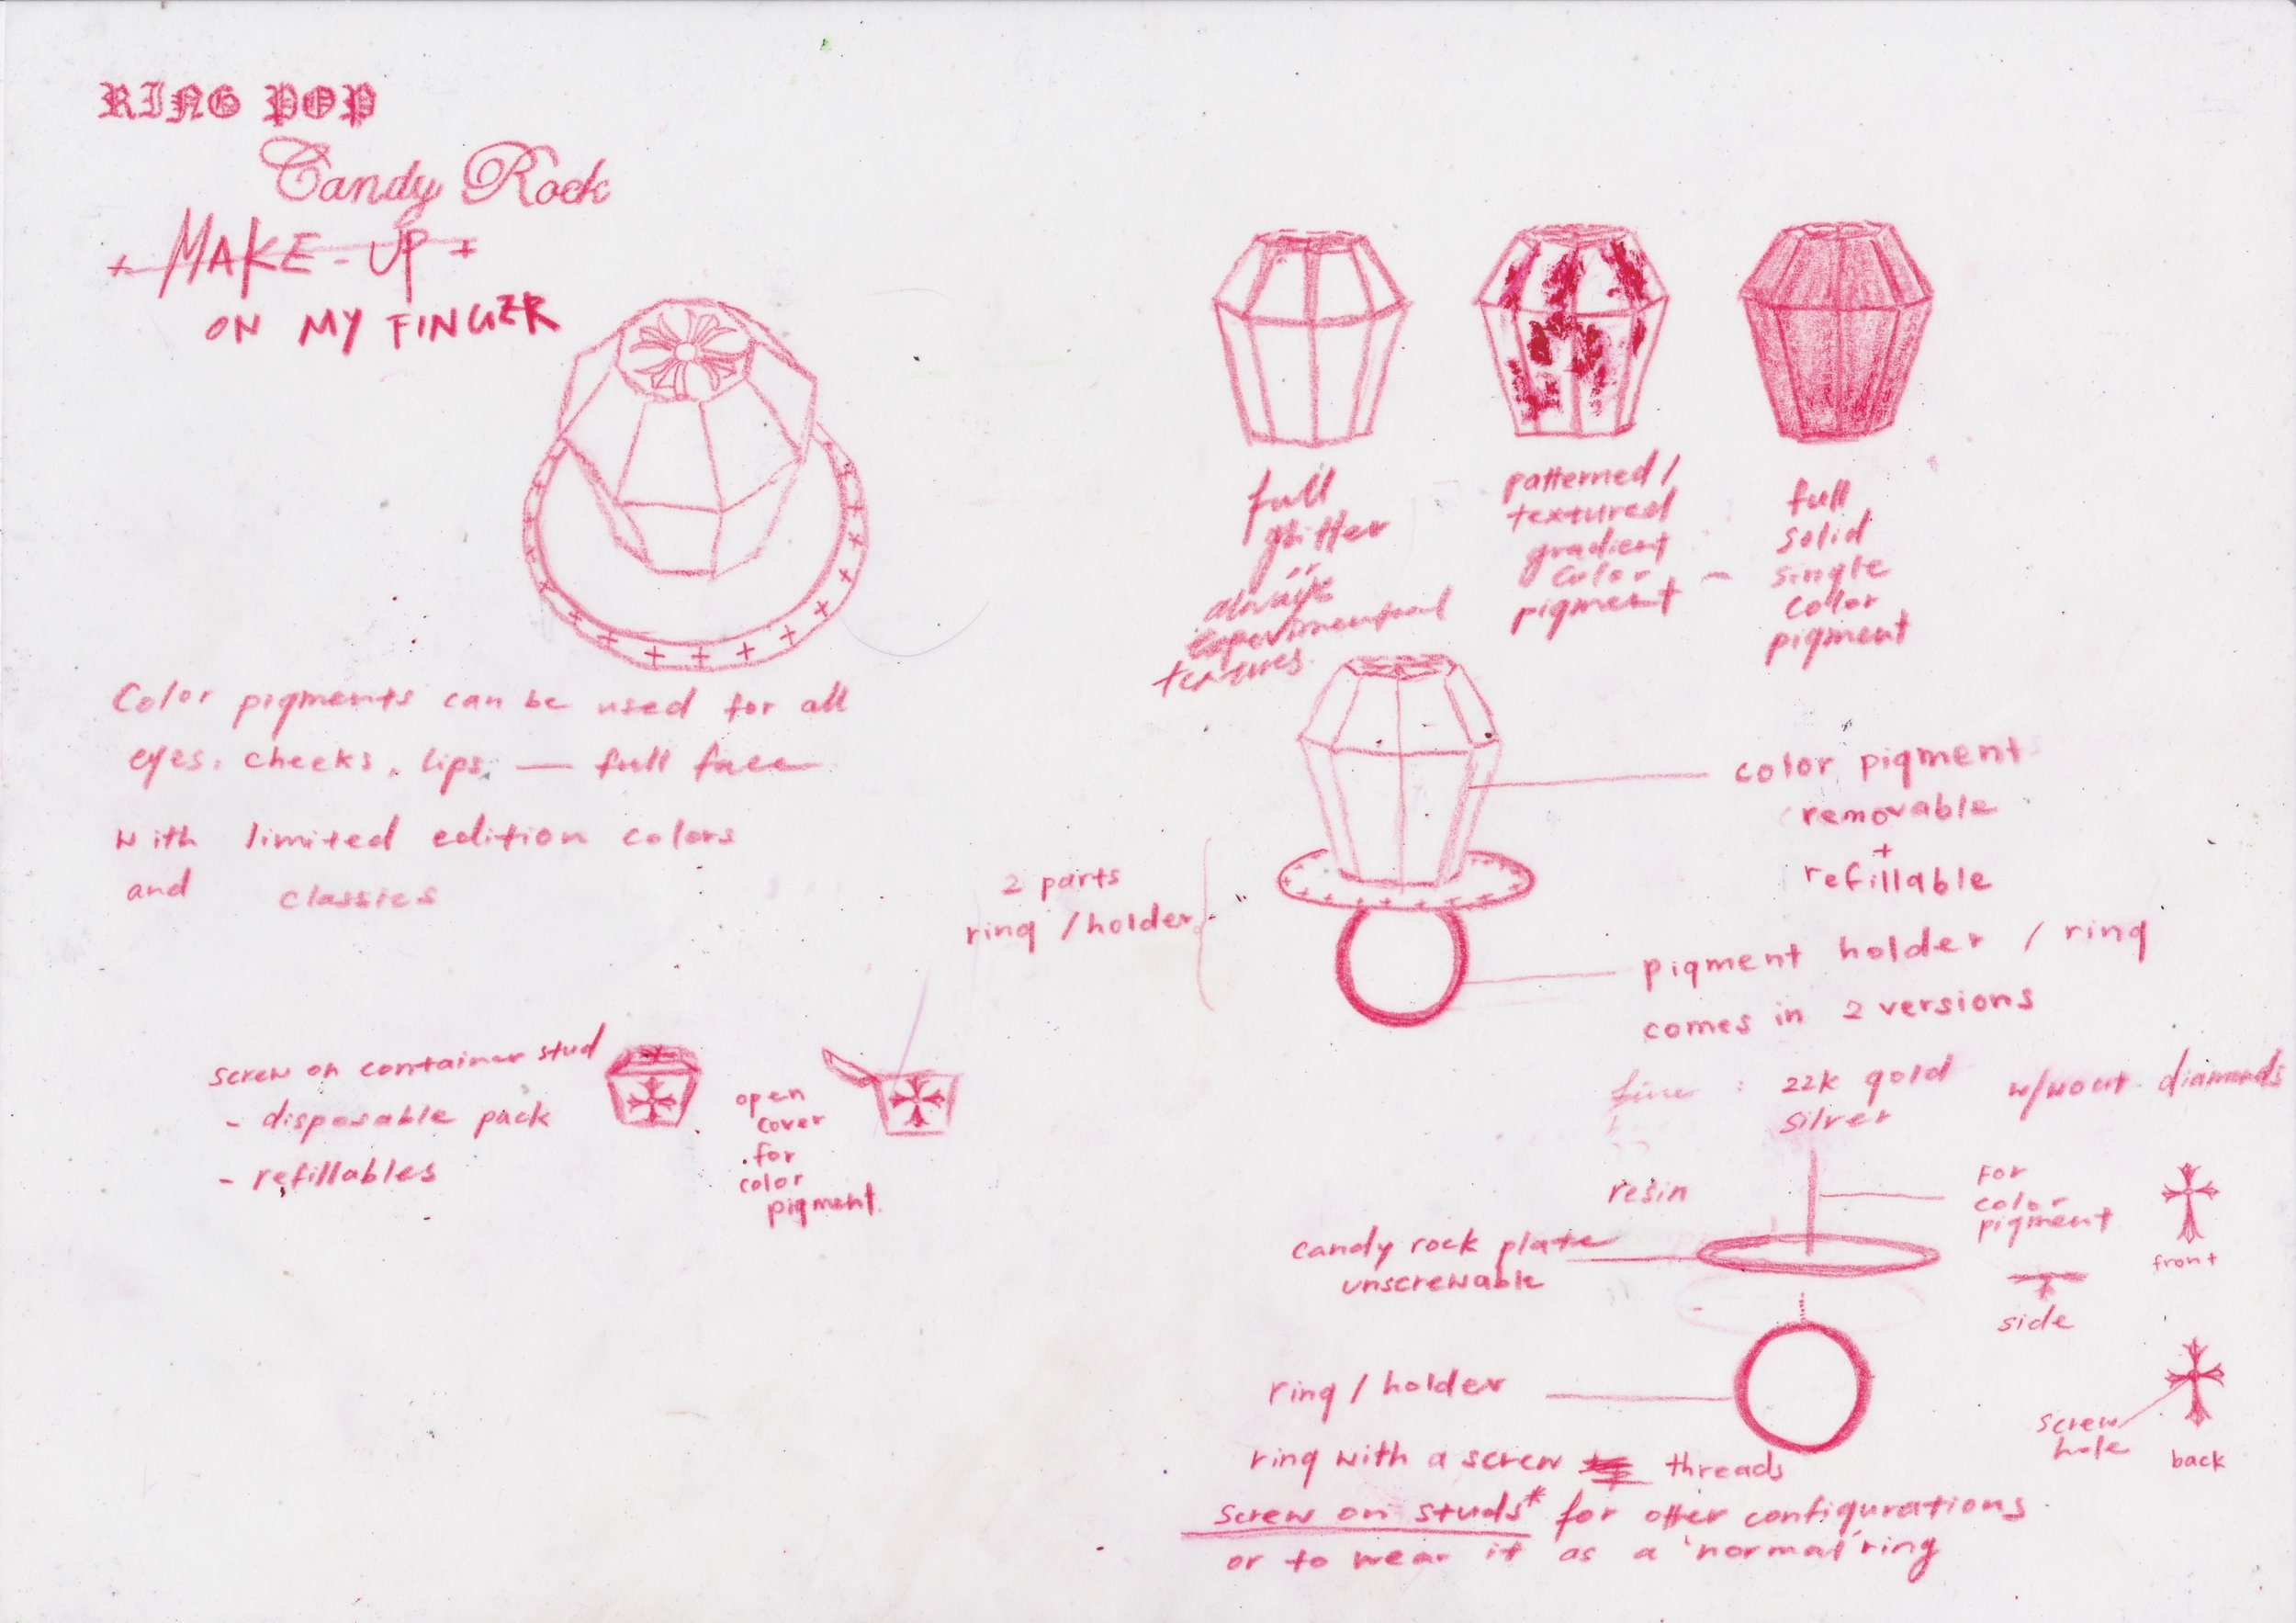 RING POP
Candy Rock
+ MAKE-UP +
ON MY FINGER
Color pigments can be used for all
eyes, cheeks, lips — full face
with limited edition colors
and classics
screw on container stud
- disposable pack
- refillables
open
cover
for
color
pigment.
full
glitter
always
experimental
textures.
patterned /
textured
gradient
color —
pigment
full
solid
single
color
pigment
color pigment
removable
+
refillable
2 parts
ring / holder
pigment holder / ring
comes in 2 versions
fine : 22k gold w/wout diamonds
silver
resin
for
color
pigment
front
candy rock plate
unscrewable
side
ring / holder
screw
hole
back
ring with a screw threads
screw on studs* for other configurations
or to wear it as a 'normal' ring